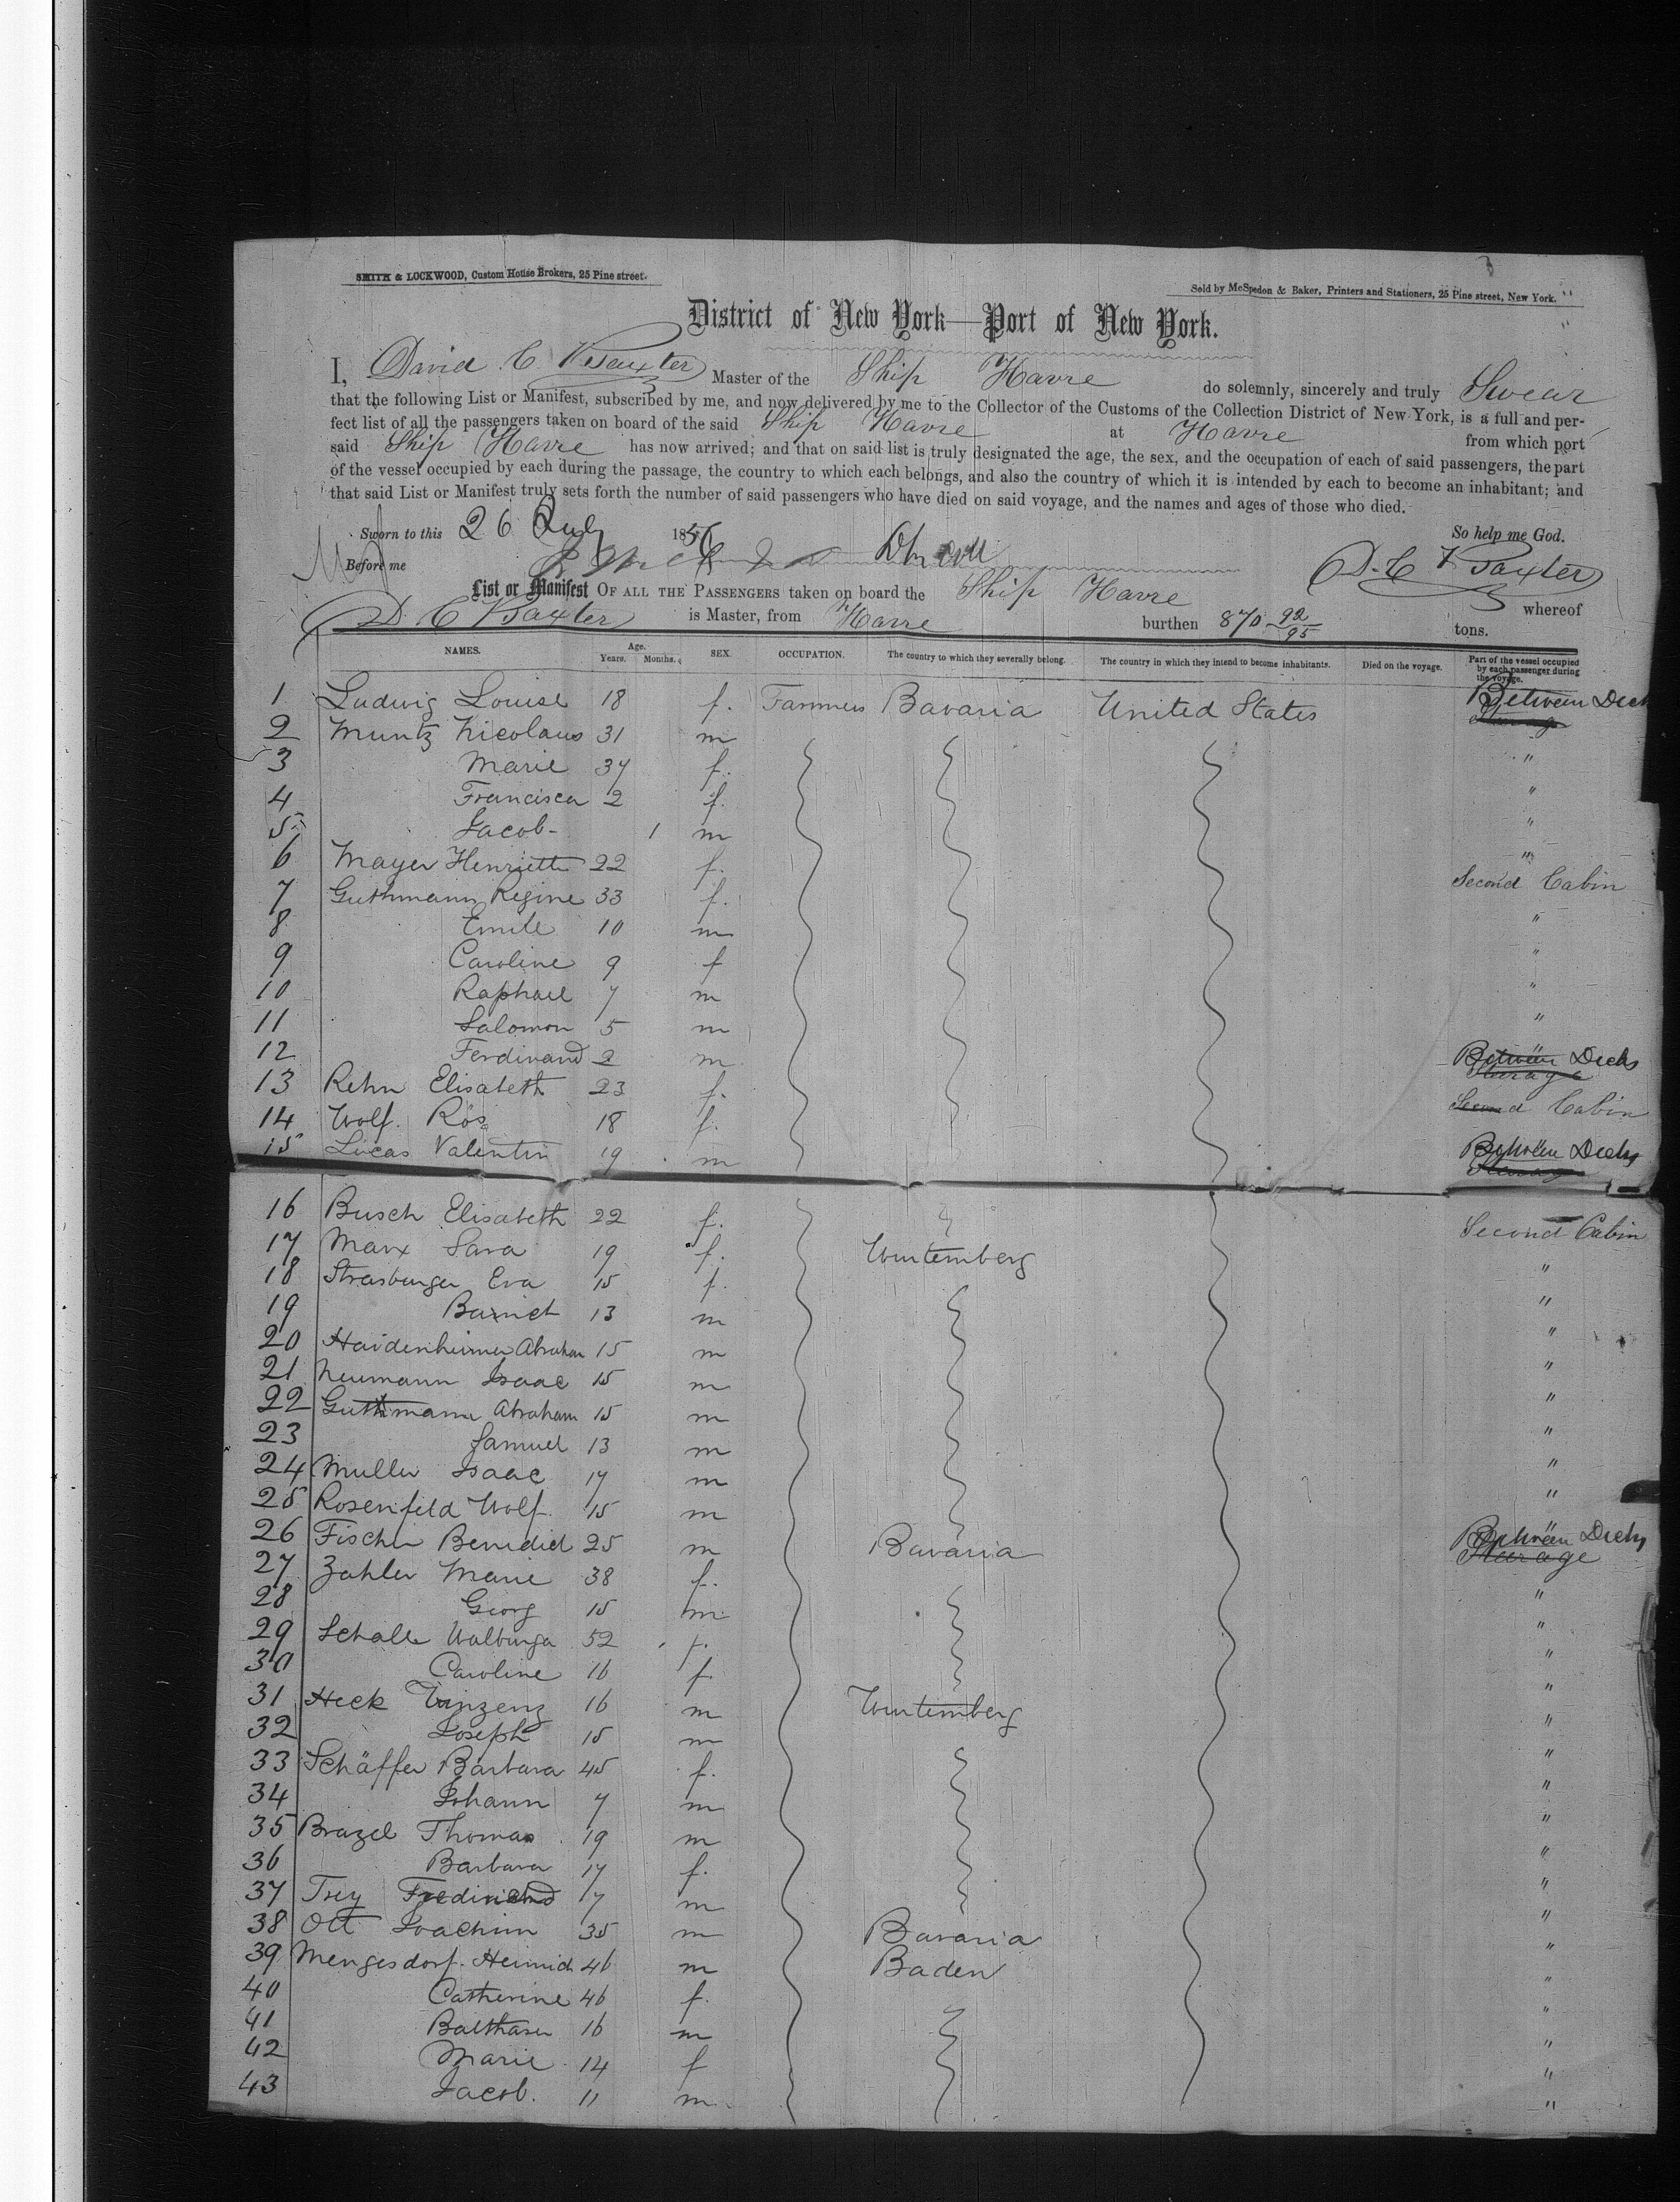 SMITH & LOCKWOOD, Custom House Brokers, 25 Pine street.
Sold by McSpedon & Baker, Printers and Stationers, 25 Pine street, New York.
District of New York—Port of New York.
I, David C Baxter Master of the Ship Havre do solemnly, sincerely and truly Swear
that the following List or Manifest, subscribed by me, and now delivered by me to the Collector of the Customs of the Collection District of New York, is a full and per-
fect list of all the passengers taken on board of the said Ship Havre at Havre from which port
said Ship Havre has now arrived; and that on said list is truly designated the age, the sex, and the occupation of each of said passengers, the part
of the vessel occupied by each during the passage, the country to which each belongs, and also the country of which it is intended by each to become an inhabitant; and
that said List or Manifest truly sets forth the number of said passengers who have died on said voyage, and the names and ages of those who died.
Sworn to this 26 July 1856 So help me God.
Before me D. C Baxter
List or Manifest OF ALL THE PASSENGERS taken on board the Ship Havre whereof
D. C Baxter is Master, from Havre burthen 870 92/95 tons.
NAMES. Age. Years. Months. SEX. OCCUPATION. The country to which they severally belong. The country in which they intend to become inhabitants. Died on the voyage. Part of the vessel occupied by each passenger during the voyage.
1 Ludwig Louise 18 f. Farmers Bavaria United States Between Deck
2 Muntz Nicolaus 31 m "
3 Marie 34 f. "
4 Francisca 2 f. "
5 Jacob 1 m "
6 Mayer Henriette 22 f. Second Cabin
7 Guthmann Regine 33 f. "
8 Emile 10 m "
9 Caroline 9 f "
10 Raphael 7 m "
11 Salomon 5 m "
12 Ferdinand 2 m Between Decks Steerage
13 Rehn Elisabeth 23 f. Second Cabin
14 Wolf. Rös 18 f.
15 Lucas Valentin 19 m Between Decks
16 Busch Elisabeth 22 f. Second Cabin
17 Marx Sara 19 f. Wurtemberg "
18 Strasburger Eva 15 f. "
19 Barnet 13 m "
20 Haidenheimer Abraham 15 m "
21 Neumann Isaac 15 m "
22 Guthmann Abraham 15 m "
23 Samuel 13 m "
24 Muller Isaac 17 m "
25 Rosenfeld Wolf 15 m "
26 Fischer Benedict 25 m Bavaria Between Decks Steerage
27 Zahler Marie 38 f. "
28 Georg 15 m "
29 Schalle Walburga 52 f. "
30 Caroline 16 f. "
31 Heck Vinzenz 16 m Wurtemberg "
32 Joseph 15 m "
33 Schäffer Barbara 45 f. "
34 Johann 7 m "
35 Brazel Thomas 19 m "
36 Barbara 17 f. "
37 Trey Ferdinand 17 m "
38 Ott Joachim 35 m Bavaria "
39 Mengesdorf. Heinrich 46 m Baden "
40 Catherine 46 f. "
41 Balthaser 16 m "
42 Marie 14 f "
43 Jacob. 11 m "